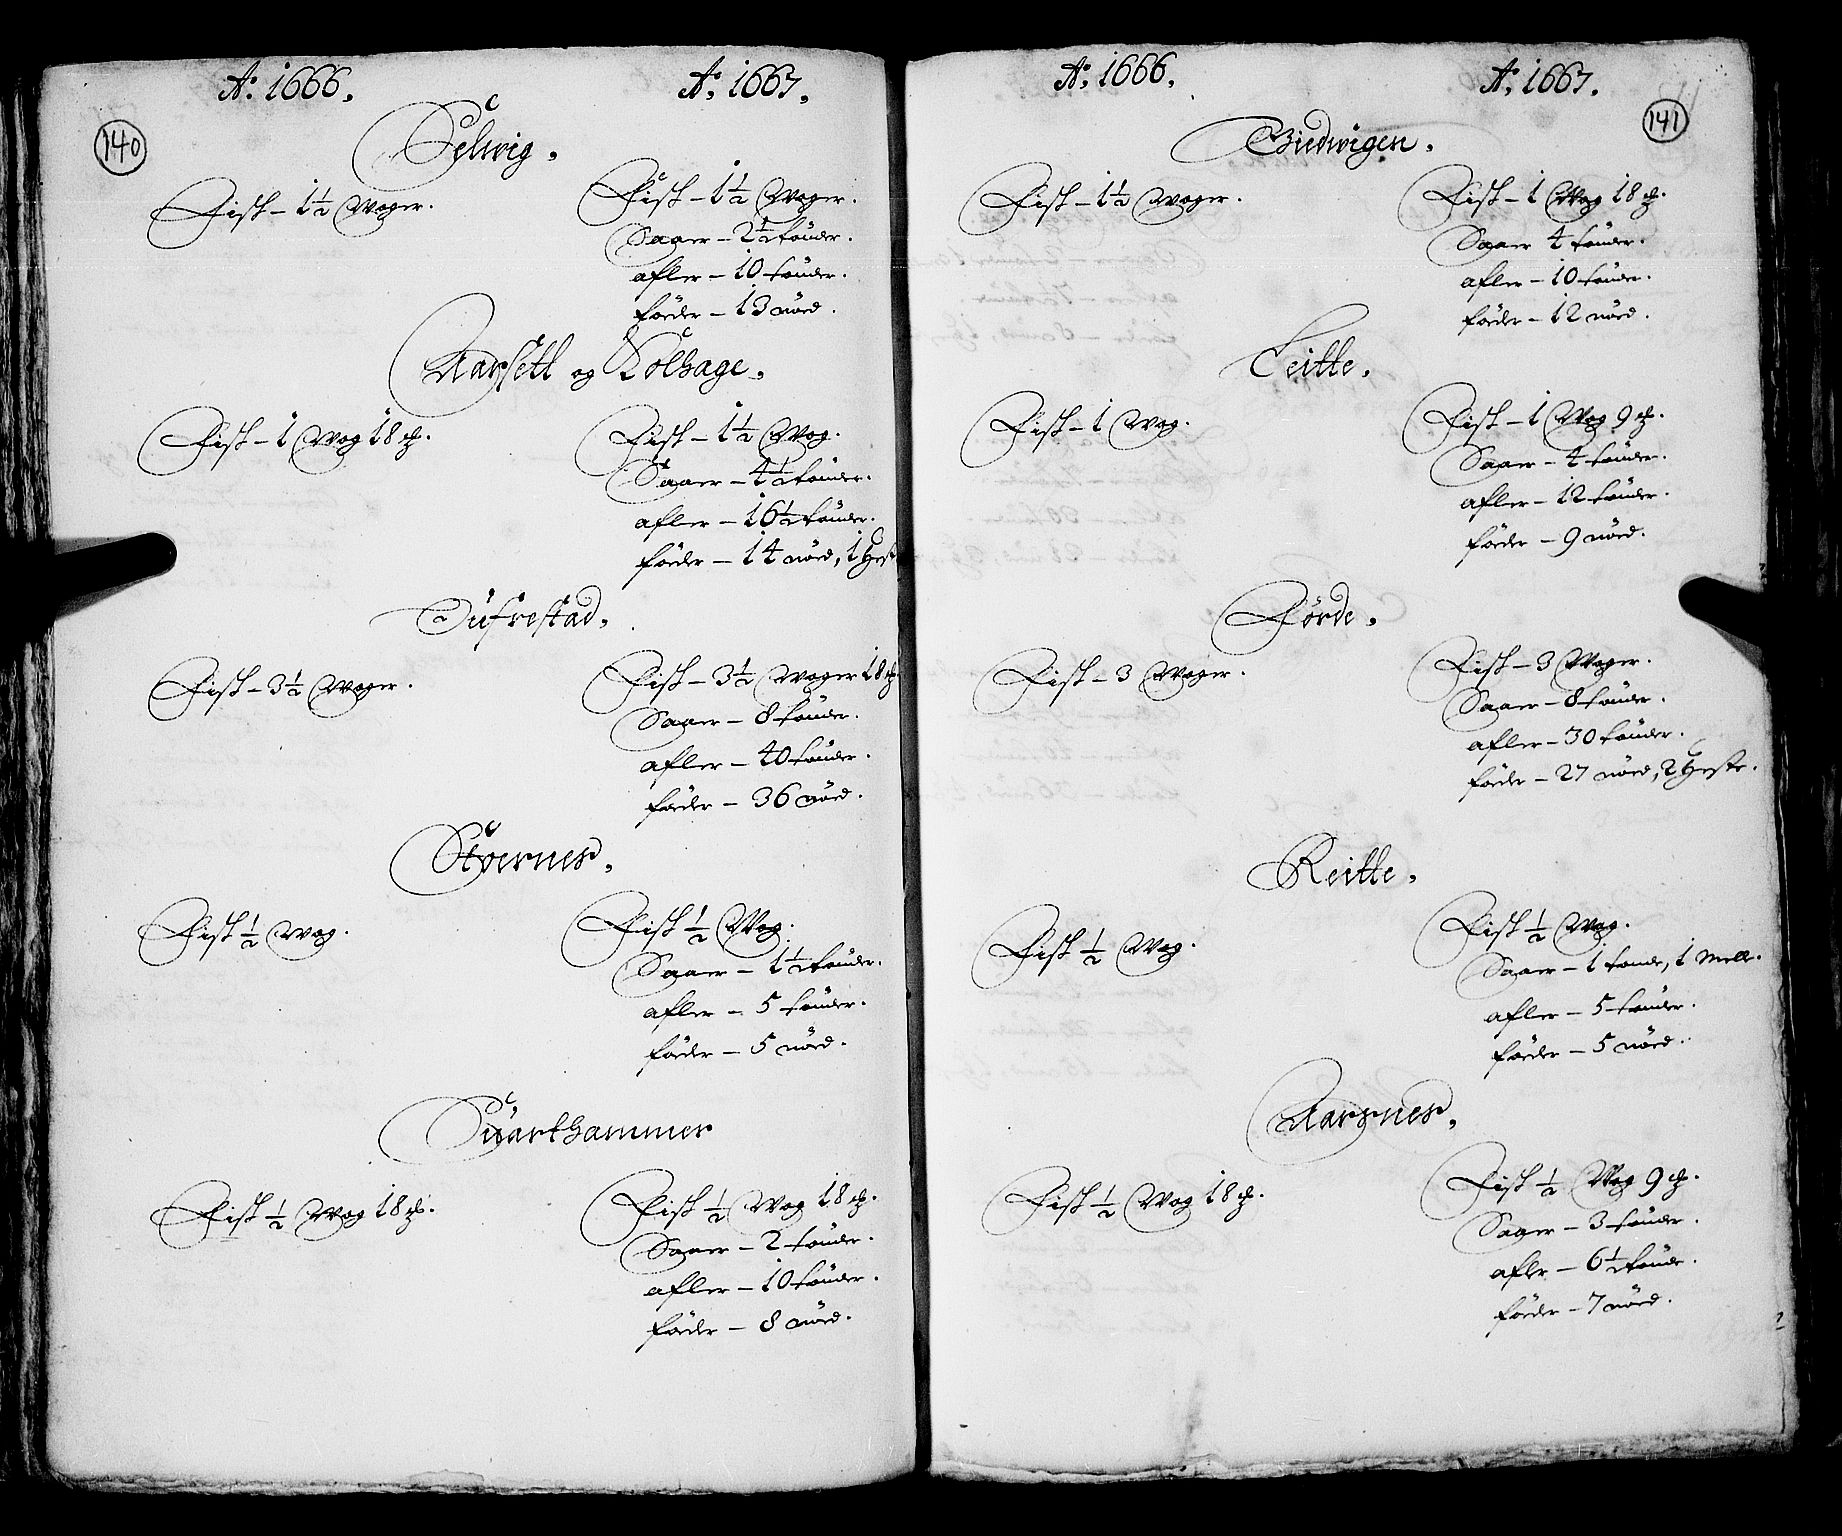 140
Aº. 1666.
Aº. 1667.
Selwig.
Fisk – 1½ Woger.
Fisk – 1½ Woger.
Saaer – 2½ tønder.
afler – 10 tønder.
føeder – 13 nöed.
Aarsett og Kolhage.
Fisk – 1 Wog 18 ℔.
Fisk – 1½ Wog.
Saaer – 4½ tønder.
afler – 16½ tønder.
føeder – 14 nöed, 1 Hest
Dufrestad.
Fisk – 3½ Woger.
Fisk – 3½ Woger 18 ℔.
Saaer – 8 tønder.
afler – 40 tønder.
føeder – 36 nöed.
Stoernes.
Fisk ½ Wog.
Fisk ½ Wog.
Saaer – 1½ tønder.
afler – 5 tønder.
føeder – 5 nöed.
Suarthammer
Fisk ½ Wog 18 ℔.
Fisk ½ Wog 18 ℔.
Saaer – 2 tønder.
afler – 10 tønder.
føeder – 8 nöed.
Aº. 1666.
Aº. 1667.
141
Biedwigen.
Fisk – 1½ Woger.
Fisk – 1 Wog 18 ℔.
Saaer 4 tønder.
afler – 10 tønder.
føeder – 12 nöed.
Leitte.
Fisk – 1 Wog.
Fisk – 1 Wog 9 ℔.
Saaer – 4 tønder.
afler – 12 tønder.
føeder – 9 nöed.
Førde.
Fisk – 3 Woger.
Fisk – 3 Woger.
Saaer – 8 tønder.
afler – 30 tønder.
føeder – 27 nöed, 2 Heste.
Reitte.
Fisk ½ Wog.
Fisk ½ Wog.
Saaer – 1 tønde, 1 Melle.
afler – 5 tønder.
føeder – 5 nöed.
Aarsnes.
Fisk ½ Wog 18 ℔.
Fisk ½ Wog 9 ℔.
Saaer – 3 tønder.
afler – 6½ tønde.
føeder – 7 nöed.